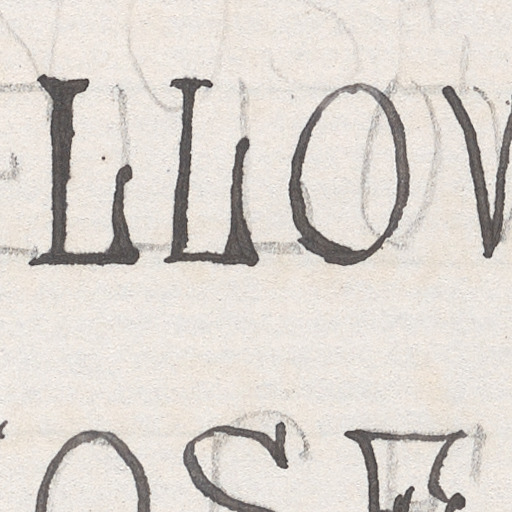 LLOW
OSE